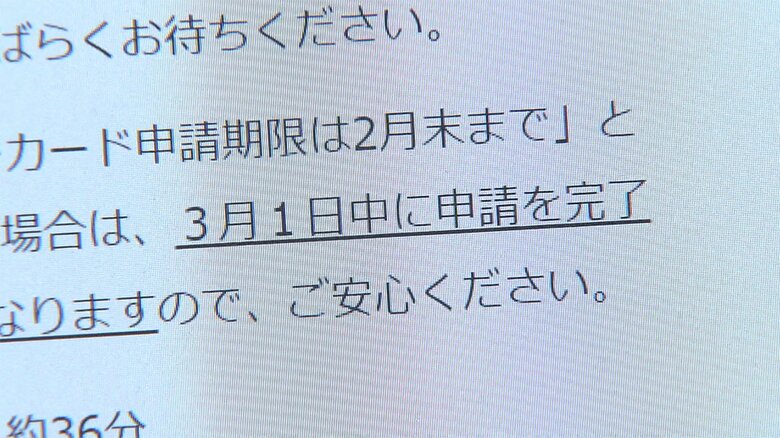 ばらくお待ちください。
カード申請期限は2月末まで」と
場合は、３月１日中に申請を完了
なりますので、ご安心ください。
約36分